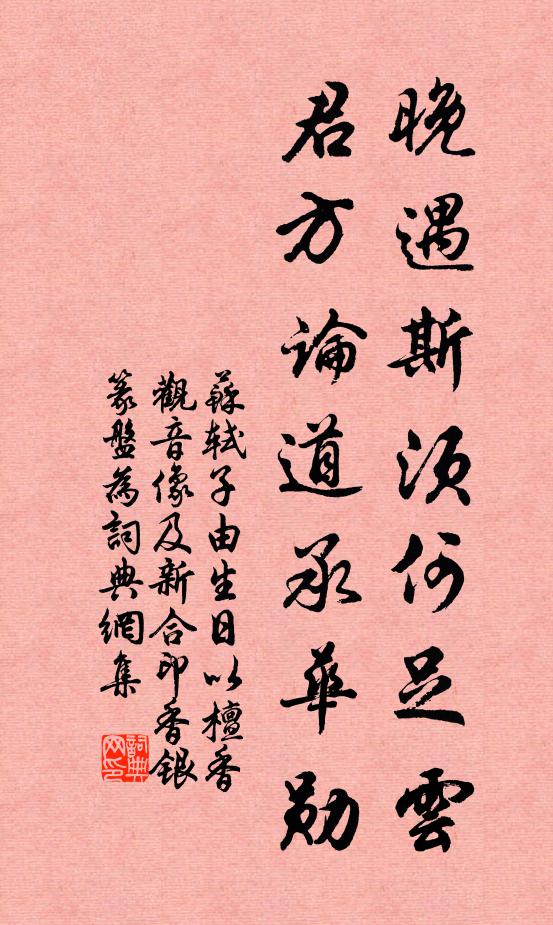 晚遇斯須何足雲
君方論道承華勛
蘇軾子由生日以檀香
觀音像及新合印香銀
篆盤為詞典網集
詞典网印